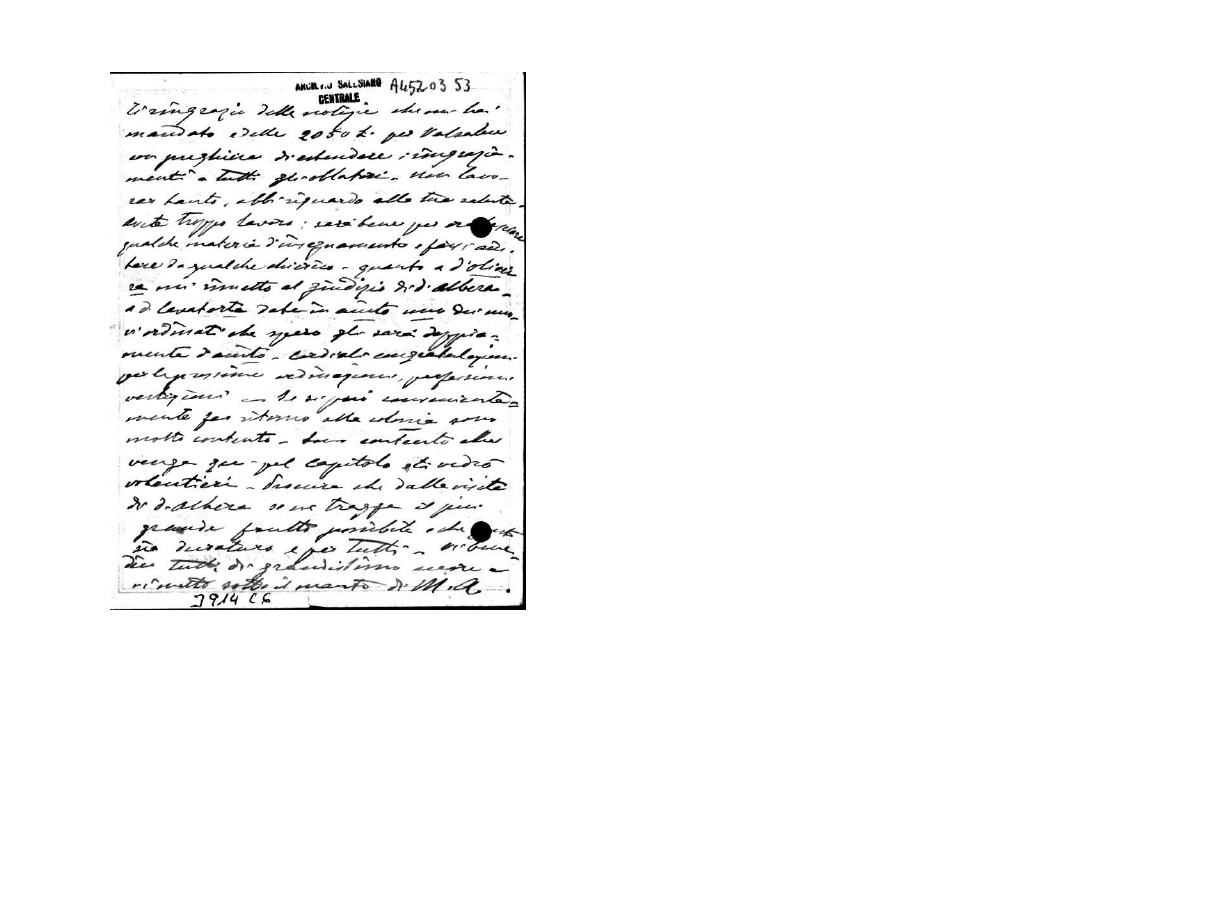 ARCHIVIO SALESIANO A452 03 53
CENTRALE
Ti ringrazio delle notizie che mi hai
mandato e delle 2050 L. per Valsalice
con preghiera di estendere i ringrazia-
menti a tutti gli oblatori. non lavo-
rar tanto, abbi riguardo alla tua salute.
avete troppo lavoro; sarà bene per ora
qualche materia d'insegnamento e farvi aiu-
tare da qualche chierico - quanto a d'olivei
ra mi rimetto al giudizio di d. albera -
a d. lavatorta date in aiuto uno dei nuo-
vi ordinati che spero gli sarà doppia-
mente d'aiuto - cordiali congratulazioni
per le prossime ordinazioni, professioni
vestizioni - Se si può conveniente=
mente far ritorno alla colonia sono
molto contento - Sono contento che
venga qui pel capitolo e ti vedrò
volentieri - Procura che dalla visita
di d. albera se ne tragga il più
grande frutto possibile e che
sia duraturo e per tutti - vi bene-
dico tutti di grandissimo cuore e
vi metto sotto il manto di M. A.
3914 C6